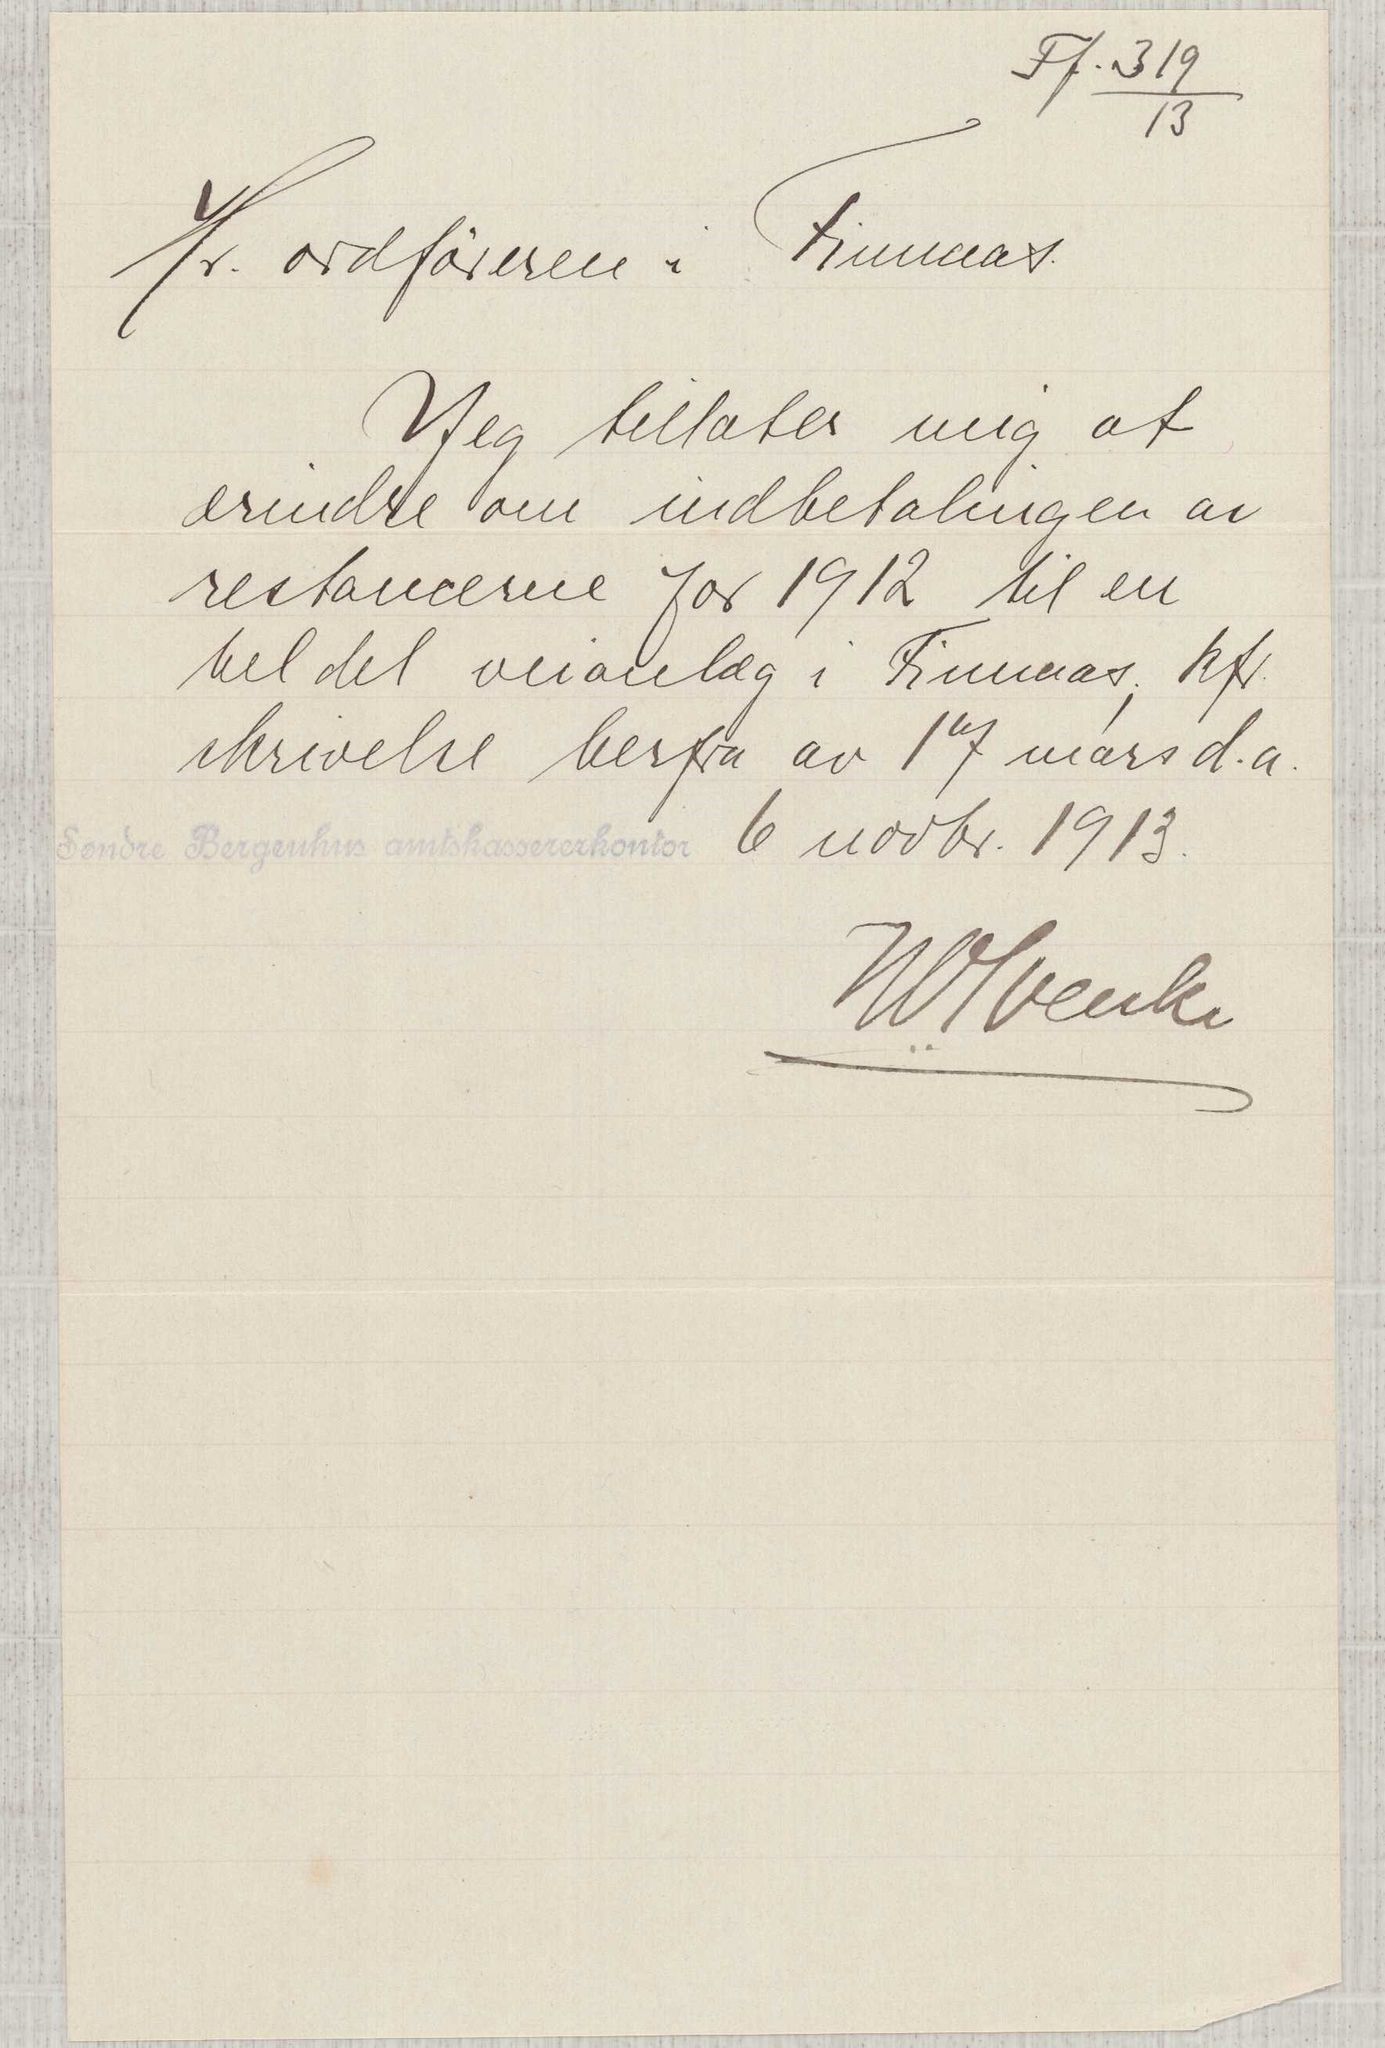 Ff. 319
13
Hr. ordföreren i Finnaas.
Jeg tillater mig at
erindre om indbetalingen av
restancerne for 1912 til en
hel del veianlæg i Finnaas, kfr.
skrivelse herfra av 17 mars d.a.
Søndre Bergenhus amtskassererkontor 6 novbr. 1913.